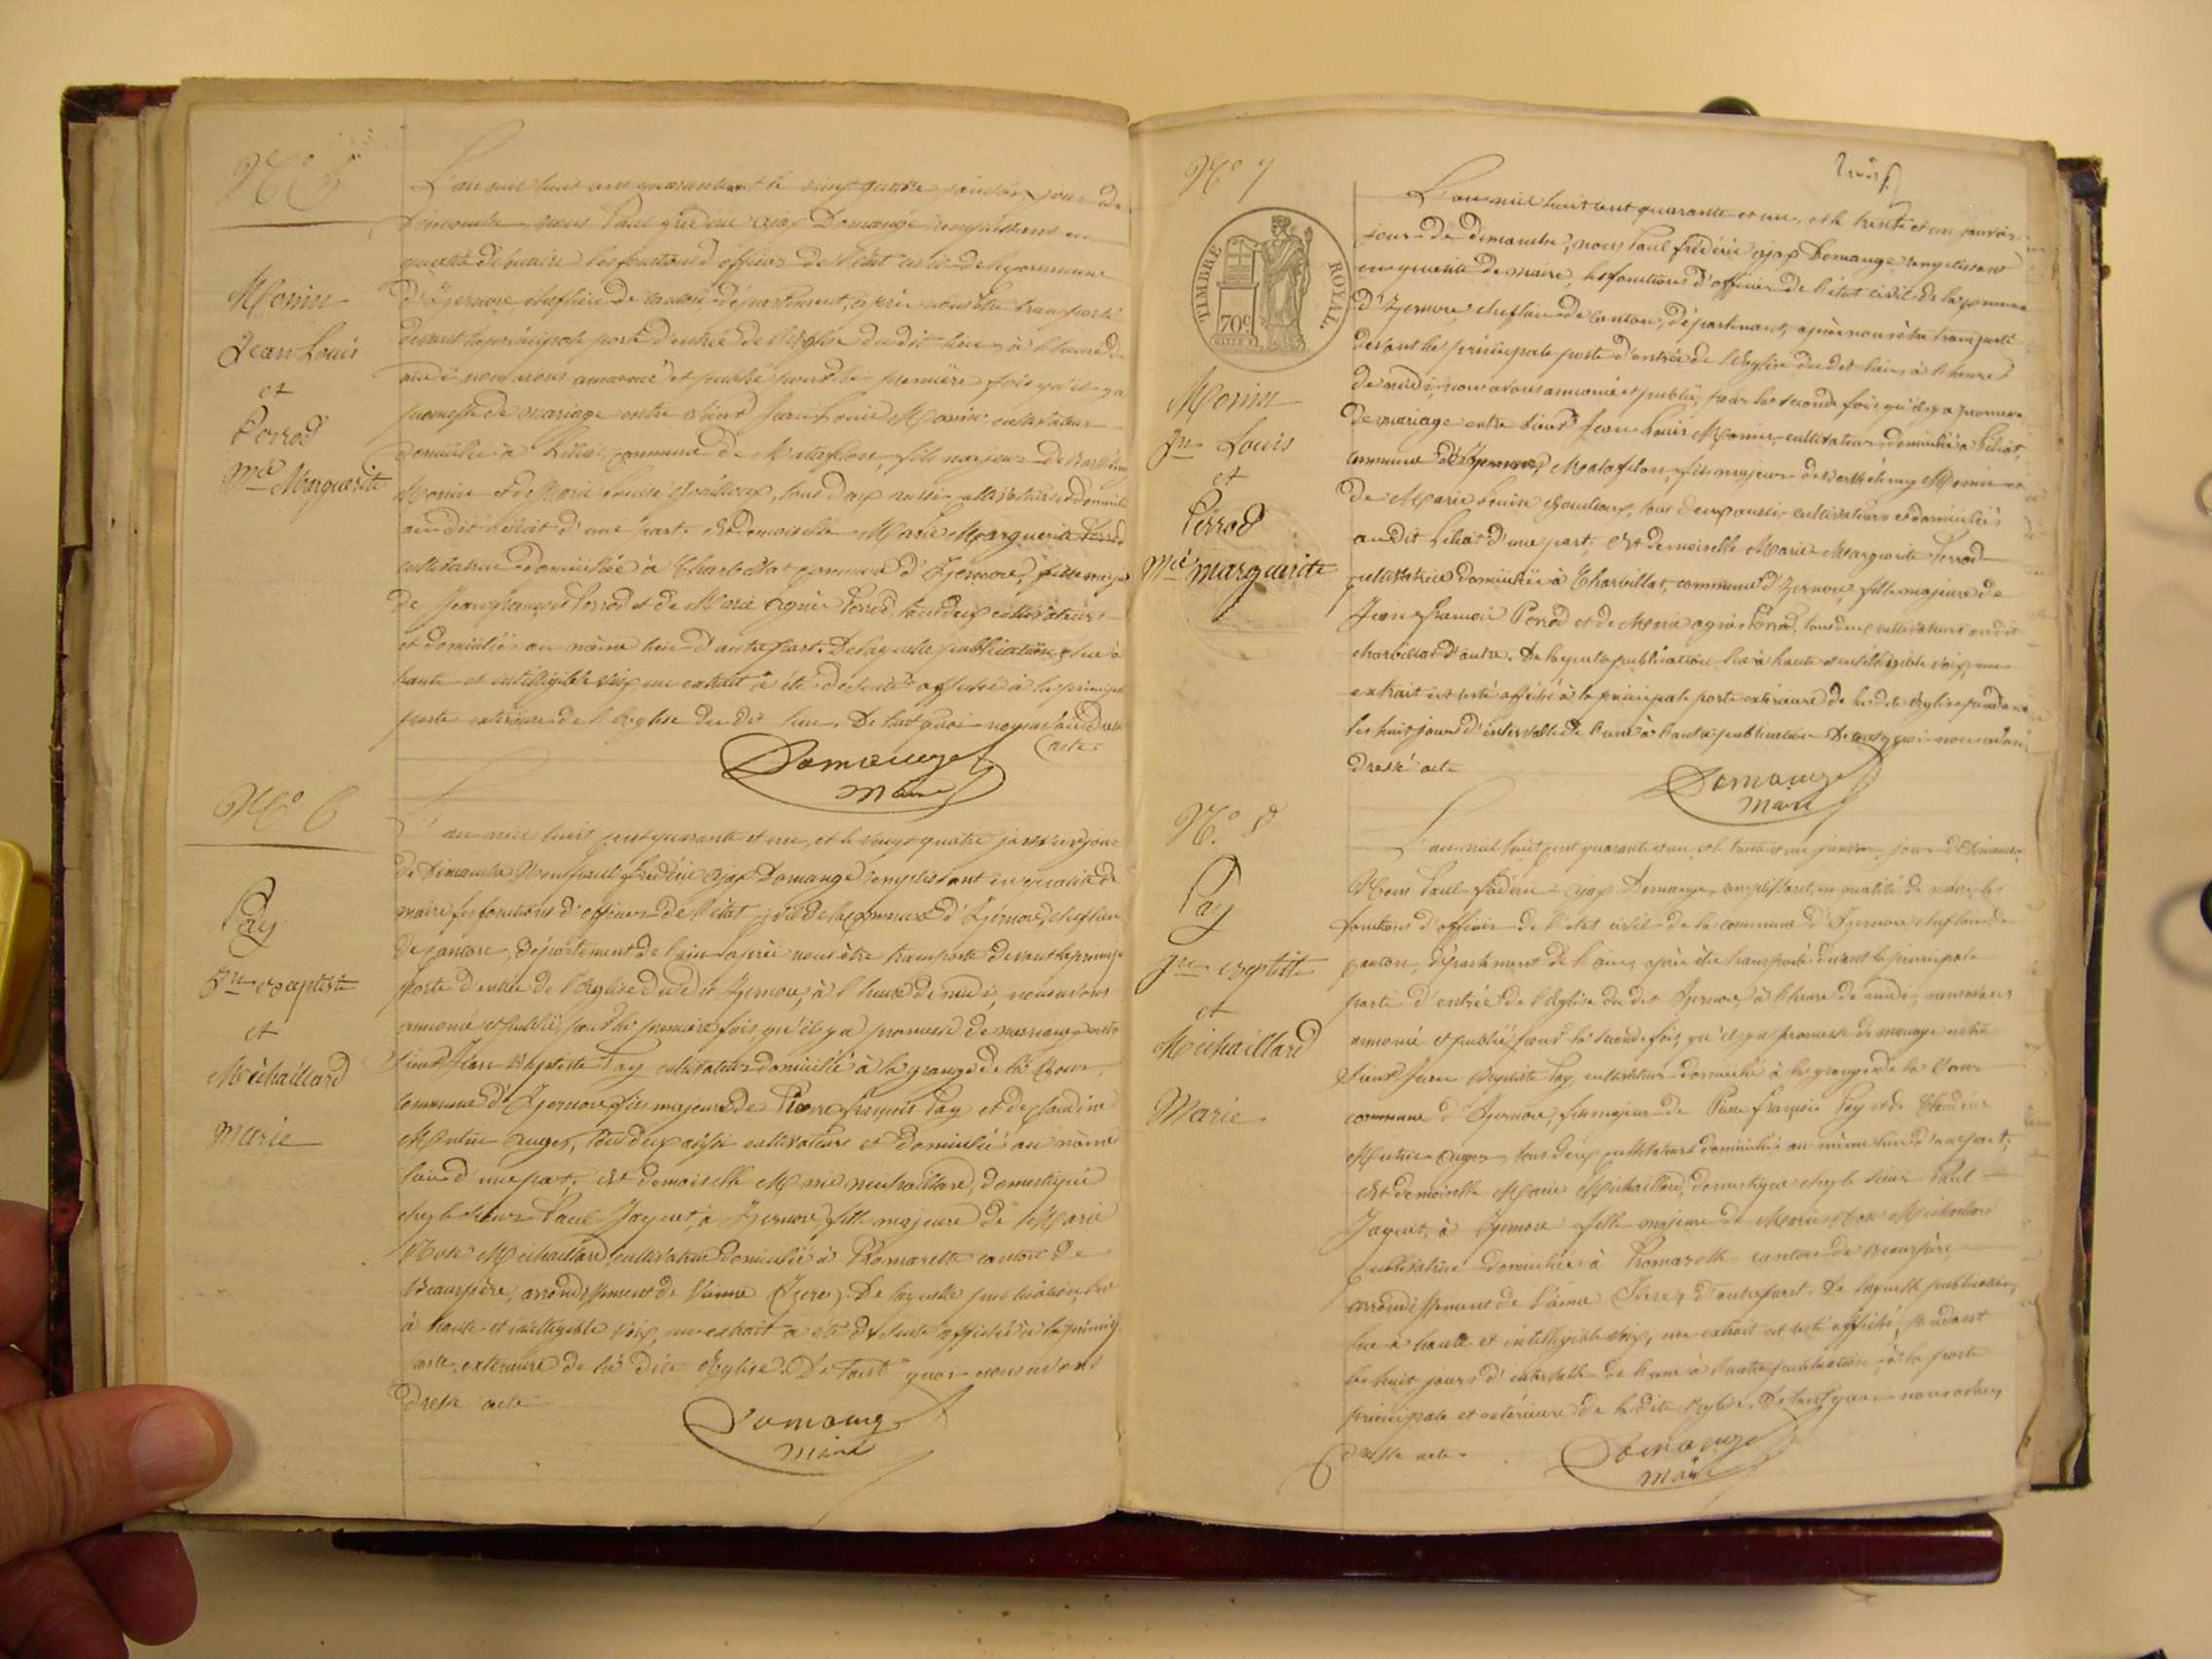 N° 5
Monin
Jean Louis
et
Perrod
Mie Marguerite
L'an mil huit cent quarante et un et le vingt quatre janvier, jour de
Dimanche, nous Paul Frédéric Ajax Domange remplissant en
qualité de maire les fonctions d'officier de l'état civil de la commune
d'Izernore, cheflieu de canton, département, après nous être transporté
devant la principale porte d'entrée de l'Eglise du dit lieu, à l'heure de
midi, nous avons annoncé et publié pour la première fois qu'il y a
promesse de mariage entre sieur Jean Louis Monin, cultivateur
domicilié à Héliat commune de Matafelon, fils majeur de Barthélemy
Monin et de Marie Louise, tous deux aussi cultivateurs et domiciliés
au dit Héliat d'une part. Et demoiselle Marie Marguerite Perrod
cultivatrice domiciliée à Charbillat commune d'Izernore, fille majeure
de Jean françois Perrod et de Marie Agnès Perrod, tous deux cultivateurs
et domiciliés au même lieu d'autre part. De laquelle publication, lue à
haute et intelligible voix, un extrait a été de suite affiché à la principale
porte extérieure de l'Eglise du dit lieu. De tout quoi nous avons dressé
acte.
Domange
Maire
N° 6
Pay
Jn Baptiste
et
Michaillard
Marie
L'an mil huit cent quarante et un, et le vingt quatre janvier, jour
de Dimanche Nous Paul Frédéric Ajax Domange remplissant en qualité de
maire les fonctions d'officier de l'état civil de la commune d'Izernore, cheflieu
de canton, département de l'ain, après nous être transporté devant la principale
porte d'entrée de l'Eglise du dit Izernore, à l'heure de midi, nous avons
annoncé et publié, pour la première fois, qu'il y a promesse de mariage entre
sieur Jean Baptiste Pay cultivateur domicilié à la grange de la Cour
commune d'Izernore fils majeur de Pierre françois Pay et de Claudine
Auger, tous deux aussi cultivateurs et domiciliés au même
lieu d'une part; Et demoiselle Marie Michaillard, domestique
chez le sieur Paul Jaquet, à Izernore, fille majeure de Marie
Rose Michaillard, cultivatrice domiciliée à Pomarette canton de
Beaurepère, arrondissement de Vienne (Isère). De laquelle publication, lue
à haute et intelligible voix, un extrait a été de suite affiché à la principale
porte extérieure de la dite Eglise. De tout quoi nous avons
dressé acte
Domange
Maire
trois
N° 7
TIMBRE ROYAL
70c
Monin
Jn Louis
et
Perrod
Mie Marguerite
L'an mil huit cent quarante et un, et le trente et un janvier
jour de Dimanche, nous Paul frédéric Ajax Domange remplissant
en qualité de maire, les fonctions d'officier de l'état civil de la commune
d'Izernore cheflieu de canton, département, après nous être transporté
devant la principale porte d'entrée de l'Eglise du dit lieu, à l'heure
de midi, nous avons annoncé et publié, pour la seconde fois qu'il y a promesse
de mariage entre sieur Jean Louis Monin, cultivateur, domicilié à Héliat,
commune d'Izernore, Matafelon, fils majeur de Barthélemy Monin et
de Marie Louise, tous deux aussi cultivateurs et domiciliés
au dit Héliat d'une part; Et demoiselle Marie Marguerite Perrod
cultivatrice domiciliée à Charbillat, commune d'Izernore, fille majeure de
Jean françois Perrod et de Marie agnès Perrod, tous deux cultivateurs au dit
charbillat d'autre. De laquelle publication lue à haute et intelligible voix, un
extrait est resté affiché à la principale porte extérieure de la dite Eglise pendant
les huit jours d'intervalle de l'une à l'autre publication. De tout quoi nous avons
dressé acte
Domange
Maire
N° 8
Pay
Jn Baptiste
et
Michaillard
Marie
L'an mil huit cent quarante et un et le trente et un janvier, jour de Dimanche
Nous Paul frédéric Ajax Domange, remplissant, en qualité de maire, les
fonctions d'officier de l'état civil de la commune d'Izernore cheflieu de
canton, département de l'ain, après être transporté devant la principale
porte d'entrée de l'Eglise du dit Izernore, à l'heure de midi, nous avons
annoncé et publié, pour la seconde fois, qu'il y a promesse de mariage entre
Sieur Jean Baptiste Pay, cultivateur domicilié à la grange de la Cour
commune d'Izernore, fils majeur de Pierre françois Pay et de Claudine
Auger, tous deux cultivateurs domiciliés au même lieu d'une part;
Et demoiselle Marie Michaillard, domestique chez le sieur Paul
Jaquet, à Izernore fille majeure de Marie Rose Michaillard
cultivatrice domiciliée à Pomarette canton de Beaurepère,
arrondissement de Vienne (Isère), d'autre part. De laquelle publication,
lue à haute et intelligible voix, un extrait est resté affiché, pendant
les huit jours d'intervalle de l'une à l'autre publication, à la porte
principale et extérieure de la dite Eglise. De tout quoi nous avons
dressé acte.
Domange
Maire